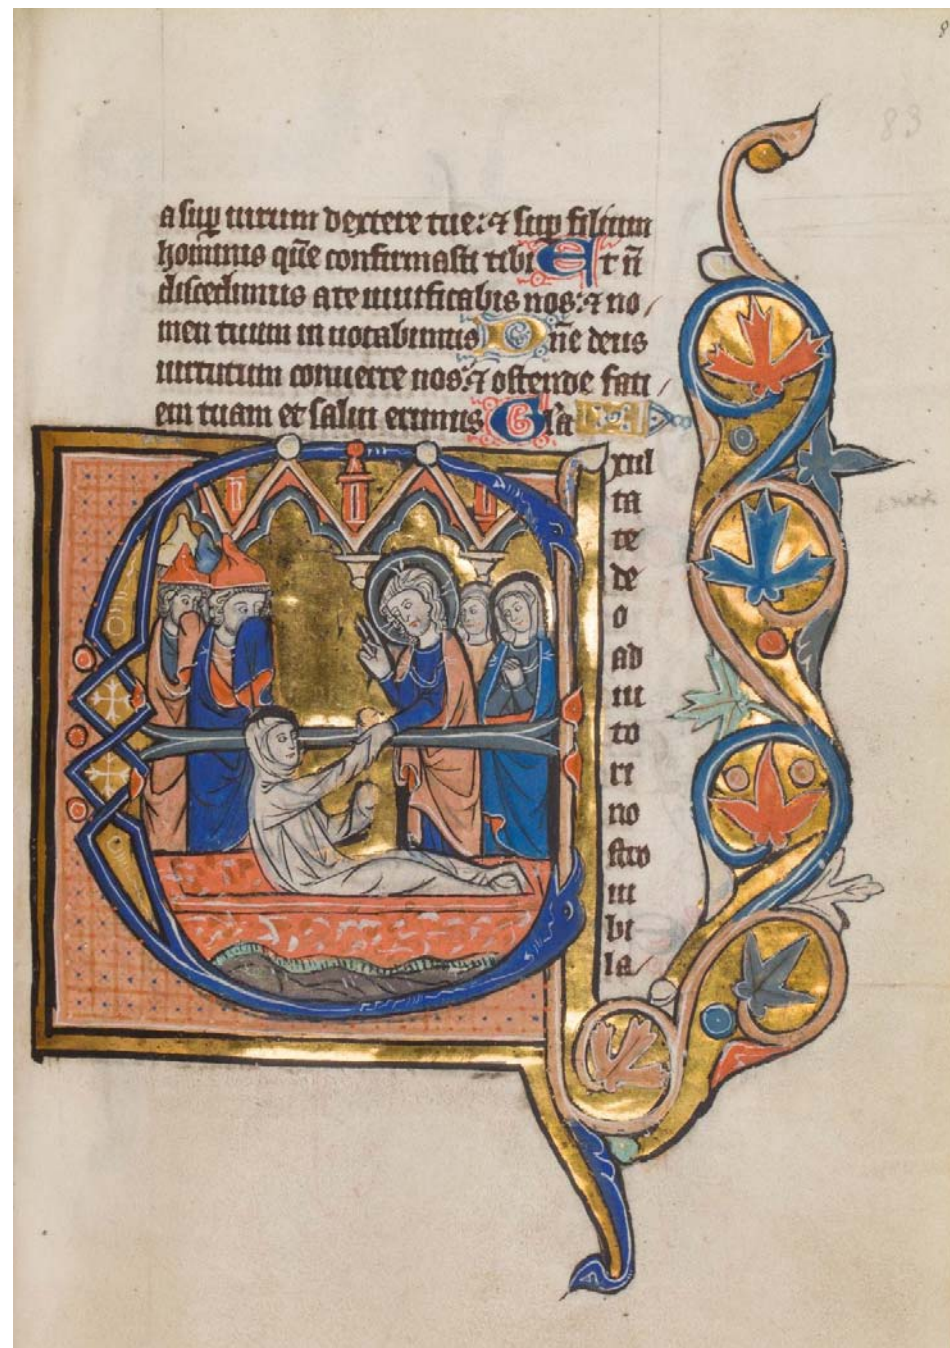 a sup uirum dextere tue: ⁊ sup filium
hominis quē confirmasti tibi Et n̄
discedimus a te uiuificabis nos: ⁊ no/
men tuum in uocabimus Dn̄e deus
uirtutum conuerte nos: ⁊ ostende faci/
em tuam et salui erimus Gla
Exul
ta
te
de
o
ad
iu
to
ri
no
stro
iu
bi
la/
83